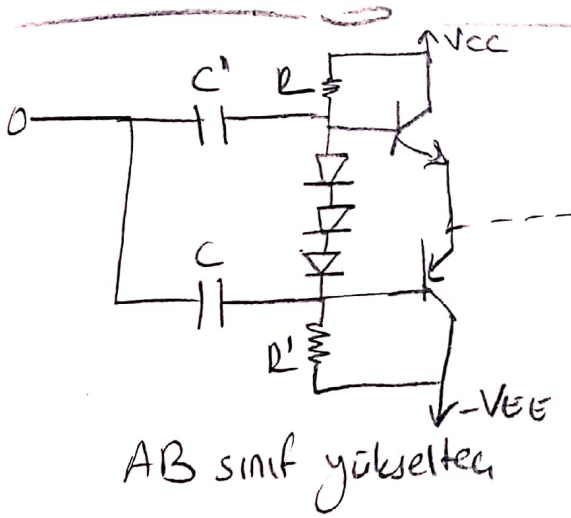 VCC
C' R
O
C
R'
-VEE
AB sınıf yükselteç